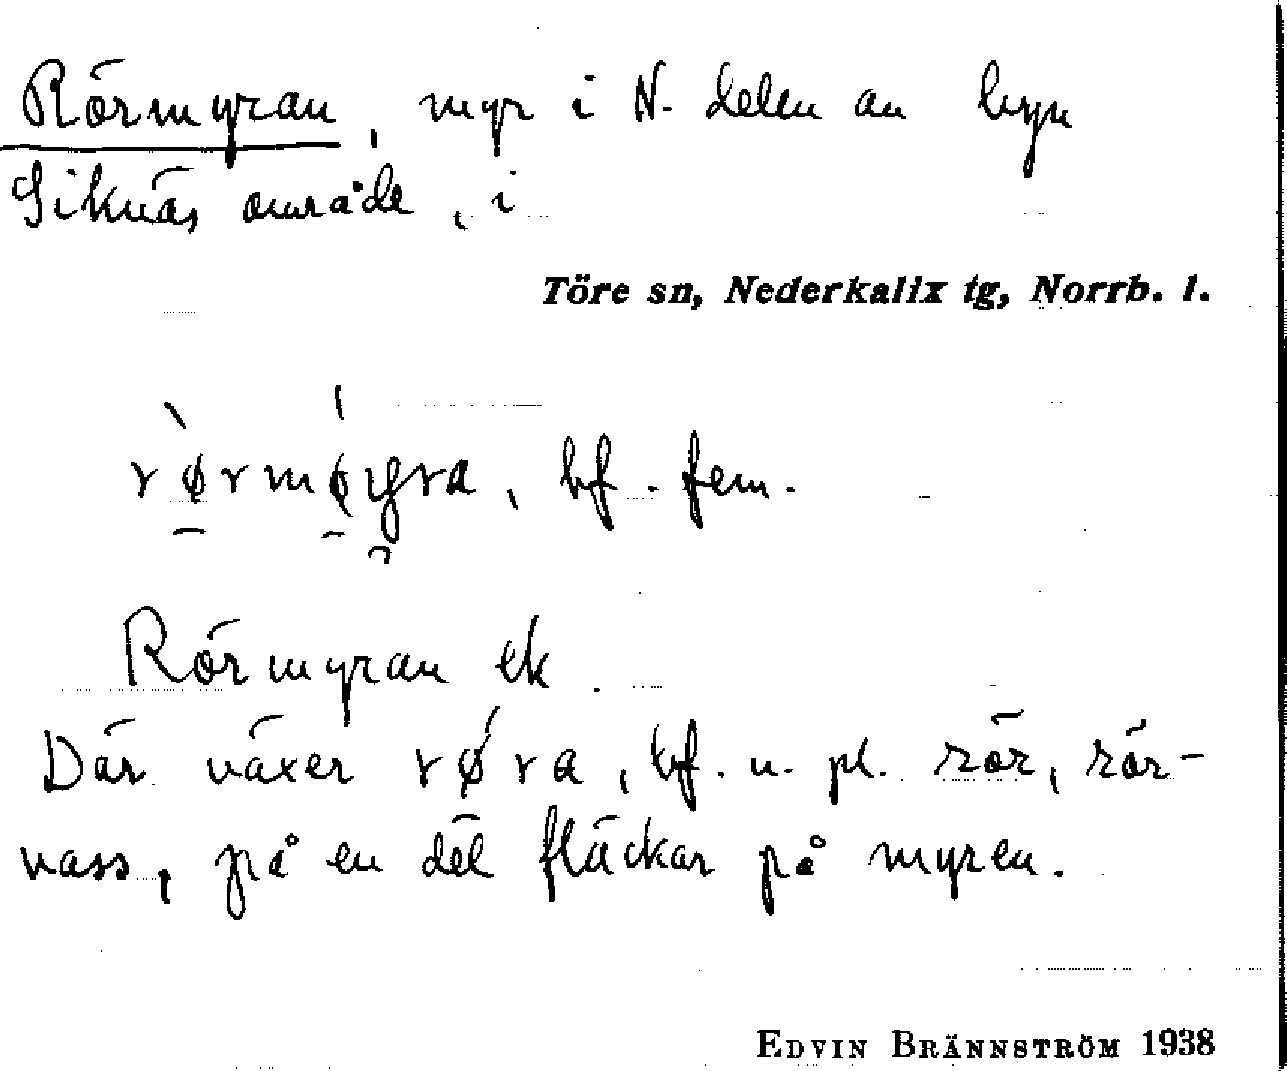 Rörmyran, myr i N. delen av byn
Siknäs område, i
Töre sn, Nederkalix tg, Norrb. l.
rø̀rmǿyra, bf. fem.
Rörmyran ek.
Där växer rǿra, bf. n. pl. rör, rör-
vass, på en del fläckar på myren.
EDVIN BRÄNNSTRÖM 1938